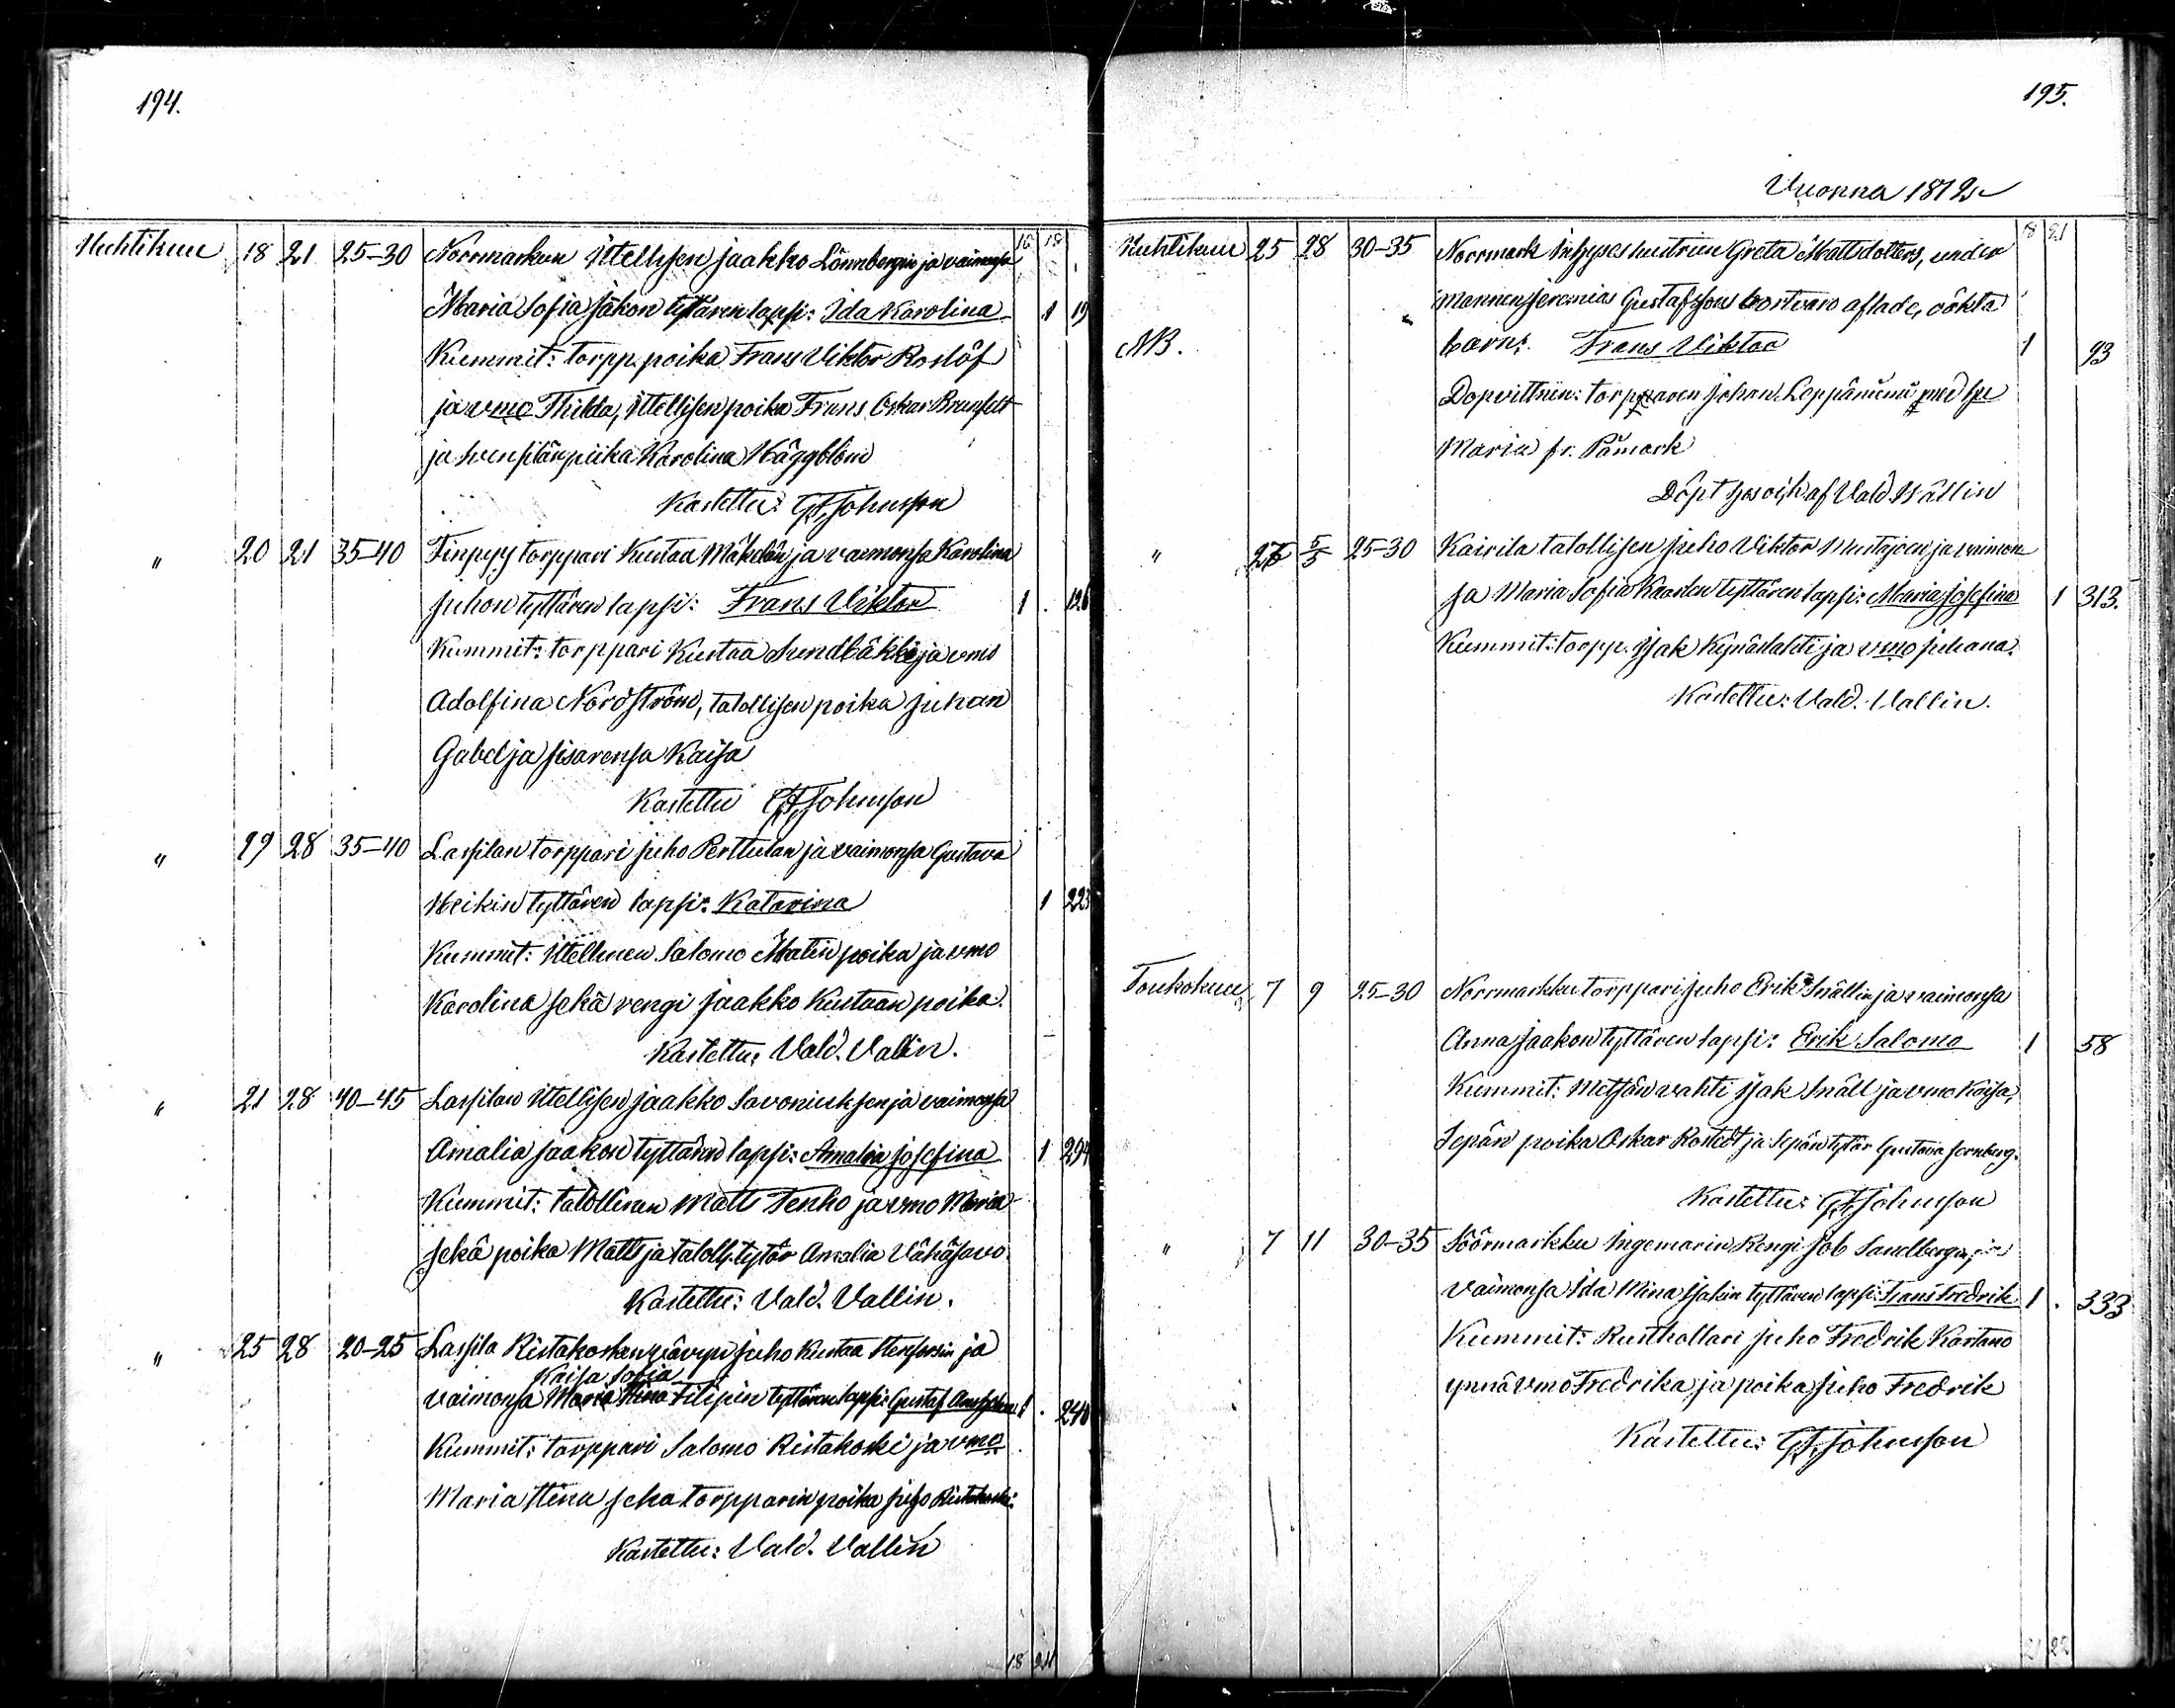 194.
Huhtikuu 18 21 25-30 Norrmarkun Itellisen Jaakko Lönnbergin ja vaimonsa 16 18
Maria Sofia Jakon tyttären lapsi: Ida Karolina 1 19
Kummit: torpp. poika Frans Viktor Roslöf
ja vmo Thilda, Itellisen poika Frans Oskar Brunfelt
ja piika Karolina Häggblom
Kastettu: G. F. Johnsson
" 20 21 35-40 Finpyy torppari Kustaa Mäkelän ja vaimonsa Karolina
Juhon tyttären lapsi: Frans Viktor 1 126
Kummit: torppari Kustaa Sundbäkki ja vmo
Adolfina Nordström, talollisen poika Juhan
Gabel ja sisarensa Kaisa
Kastettu G. F. Johnsson
" 19 28 35-40 Lassilan torppari Juho Perttulan ja vaimonsa Gustava
Heikin tyttären lapsi: Katarina 1 223
Kummit: Itellinen Salomo Matin poika ja vmo
Karolina sekä rengi Jaakko Kustaan poika.
Kastettu: Vald. Vallin.
" 21 28 40-45 Lassilan Itellisen Jaakko Savoniuksen ja vaimonsa
Amalia Jaakon tyttären lapsi: Amalia Josefina 1 294
Kummit: talollinen Matts Tenho ja vmo Maria
sekä poika Matts ja talolls. tytär Amalia Vähäsavo
Kastettu: Vald. Vallin.
" 25 28 20-25 Lassila Ristakosken Juho Kustaa ja
Kaisa Sofia
vaimonsa Maria Stina Filipin tyttären lapsi: Gustaf 1 240
Kummit: torppari Salomo Ristakoski ja vmo
Maria Stina seka torpparin poika Juho Ristakoski.
Kastettu: Vald. Vallin
18 21
195.
Vuonna 1872
18 21
Huhtikuu 25 28 30-35 Norrmark Inhyses hustrun Greta Mattsdotters, under
mannen Jeremias Gustafssons bortvaro aflade, oäkta
NB. barn: Frans Viktor 1 93
Dopvittnen: torpparen Johan Leppäniemi med
Maria fr. Påmark
Döpt af Vald. Wallin
" 26 5/5 25-30 Kairila talollisen Juho Viktor Mustajoen ja vaimon
sa Maria Sofia Kaarlen tyttären lapsi: Maria Josefina 1 313.
Kummit: torpp. Isak Kynäslahti ja vmo Juhana.
Kastettu: Vald. Vallin.
Toukokuu 7 9 25-30 Norrmarkku torppari Juho Erik Snällin ja vaimonsa
Anna Jaakon tyttären lapsi: Erik Salomo 1 58
Kummit: Metsän vahti Isak Snäll ja vmo Kaisa,
Sepän poika Oskar Rostedt ja Sepän tytär Gustava
Kastettu: G. F. Johnsson
" 7 11 30-35 Söörmarkku Ingemarin Rengi Job Sandbergin, ja
vaimonsa Ida Mina Isakin tyttären lapsi: Frans Fredrik 1 333
Kummit: Rusthollari Juho Fredrik Kartano
ynnä vmo Fredrika ja poika Juho Fredrik
Kastettu: G. F. Johnsson
21 22